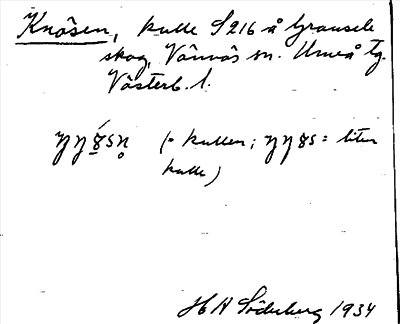 Knösen, kulle S 216 å Gransele
skog, Vännäs sn. Umeå tg.
Västerb. l.
(= kullen; = liten
kulle)
H A Söderberg 1934